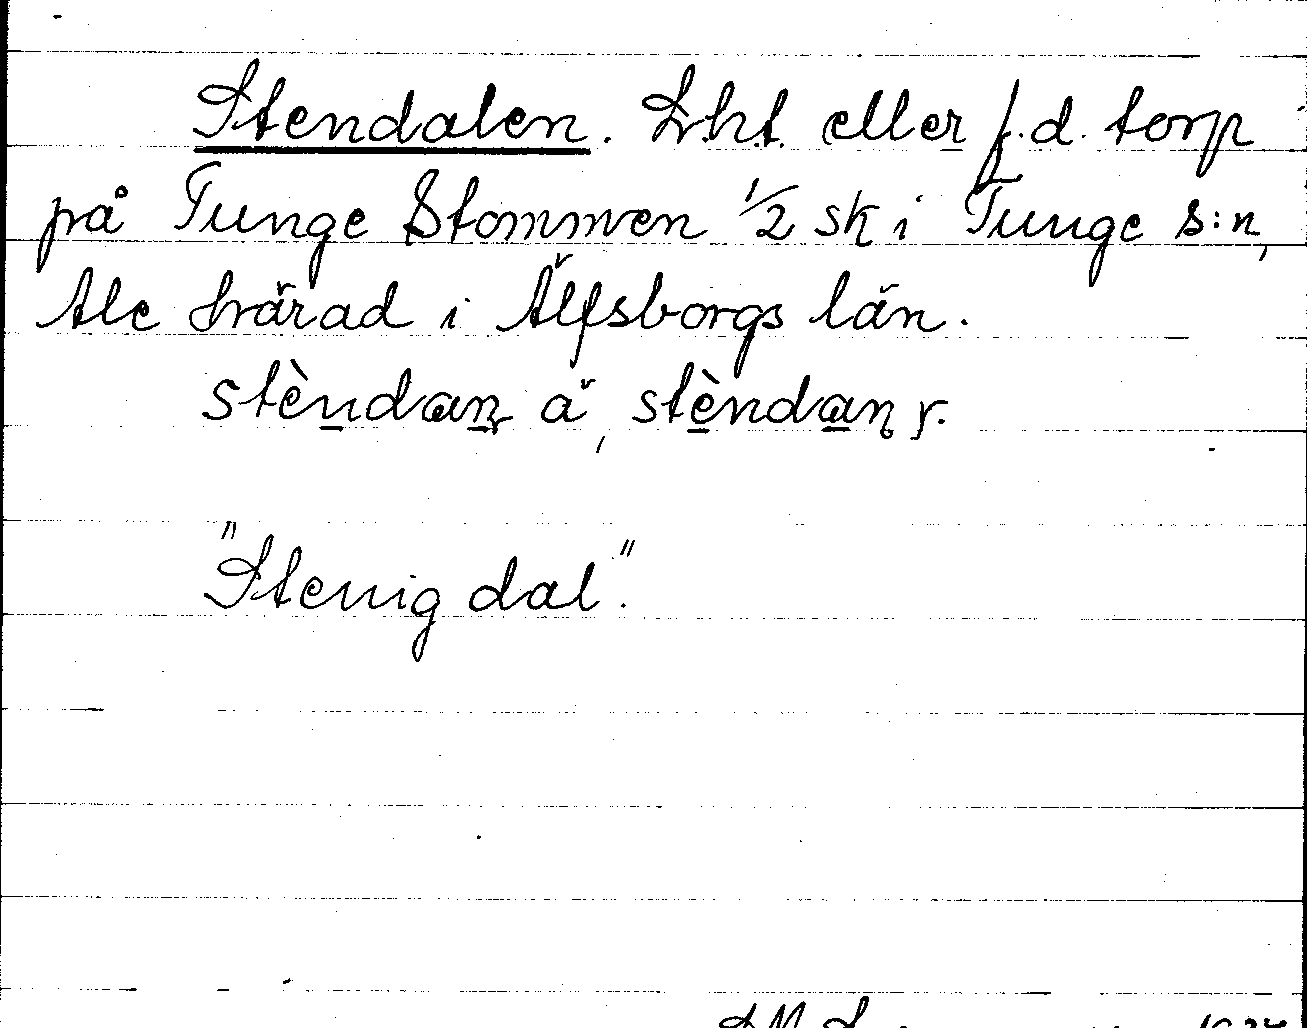 Stendalen. Lht. eller f.d. torp
på Tunge Stommen 1/2 sk i Tunge s:n,
Ale härad i Älfsborgs län.
stèndan ä, stèndan, r.
"Stenig dal".